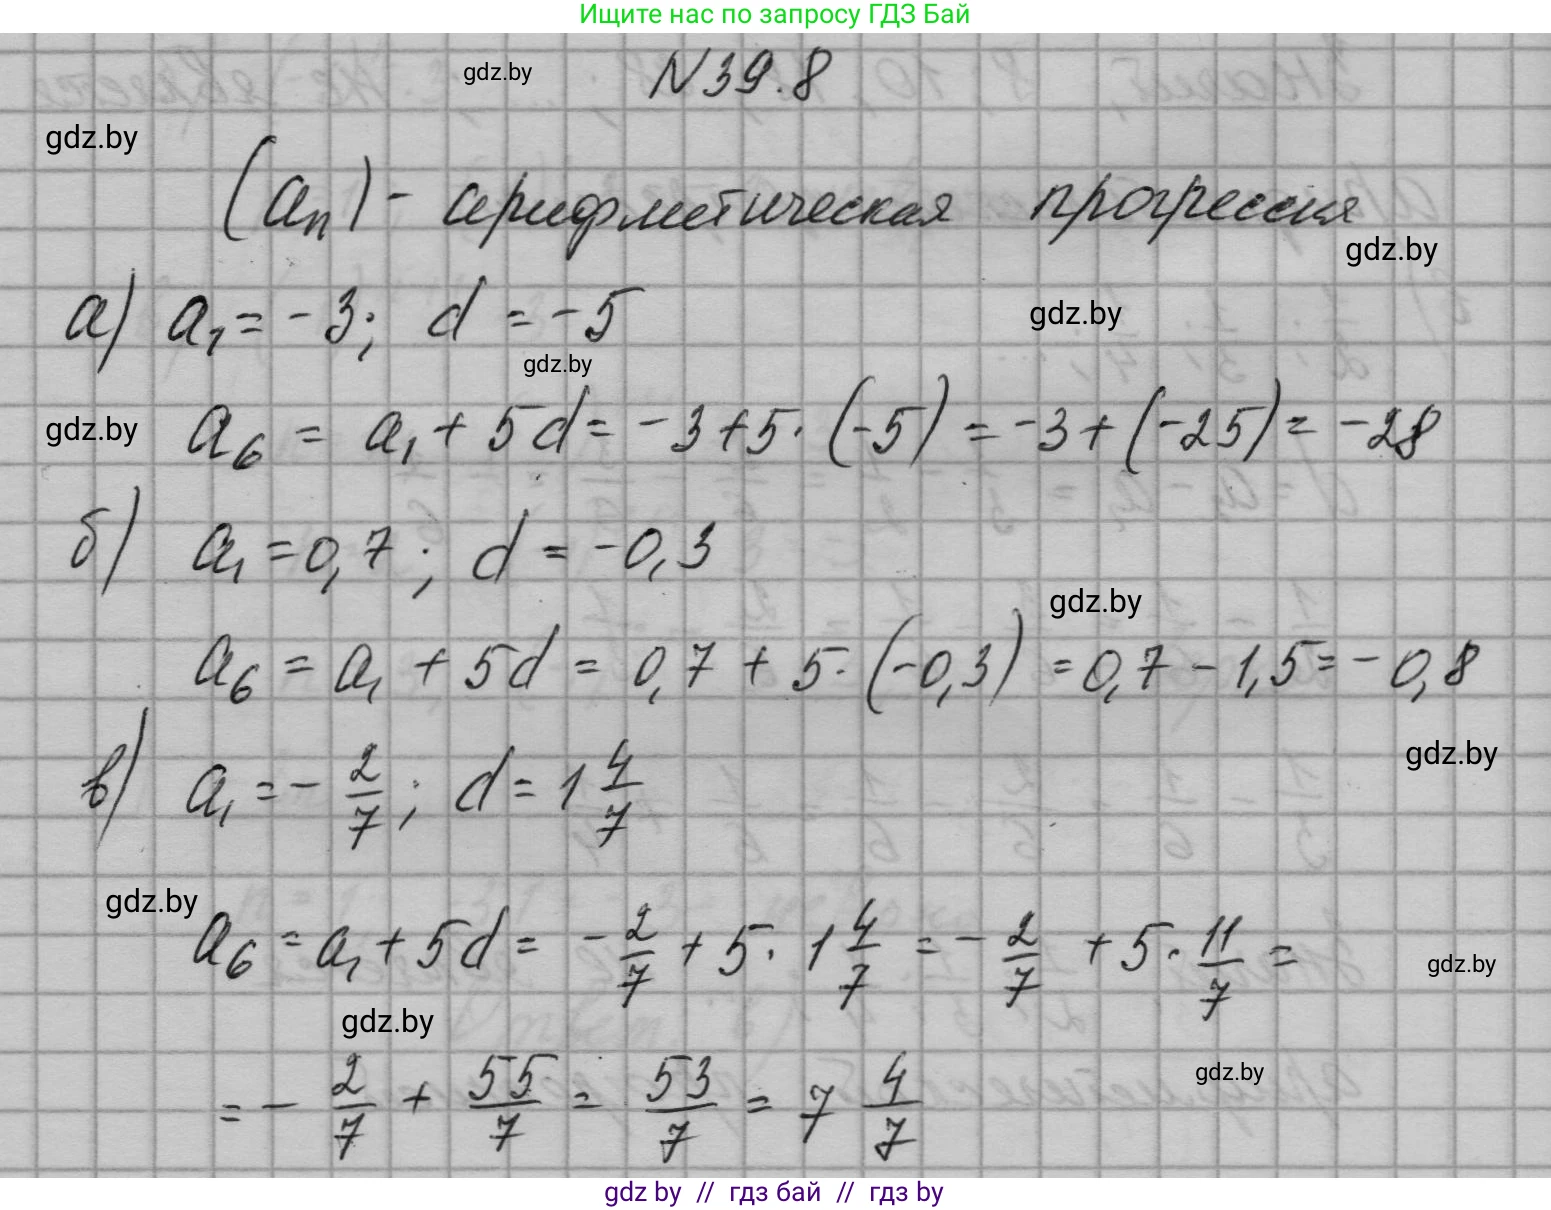 Ищите нас по запросу ГДЗ Бай
gdz.by N39.8
gdz.by
(aₙ) - арифметическая прогрессия
gdz.by
а) a₁ = -3; d = -5 gdz.by
gdz.by
gdz.by a₆ = a₁ + 5d = -3 + 5·(-5) = -3 + (-25) = -28
б) a₁ = 0,7; d = -0,3
gdz.by
a₆ = a₁ + 5d = 0,7 + 5·(-0,3) = 0,7 - 1,5 = -0,8
gdz.by
в) a₁ = - 2/7; d = 1 4/7
gdz.by
a₆ = a₁ + 5d = - 2/7 + 5· 1 4/7 = - 2/7 + 5· 11/7 =
gdz.by
gdz.by
gdz.by
= - 2/7 + 55/7 = 53/7 = 7 4/7
gdz by // гдз бай // гдз by